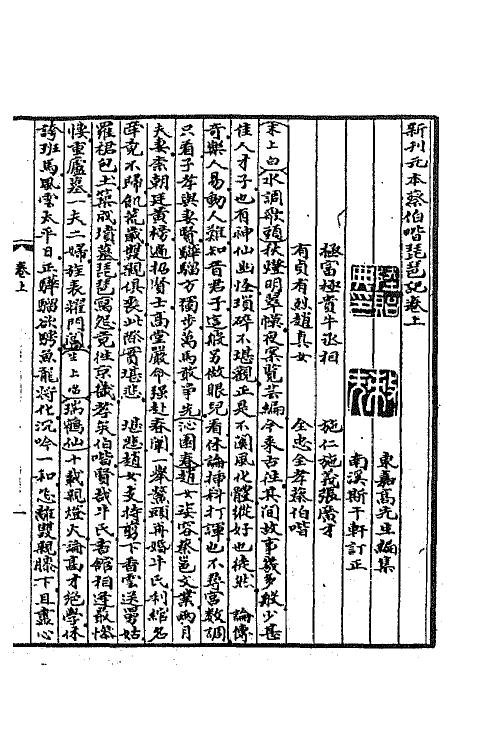 新刊元本蔡伯喈琵琶記卷上
東嘉高先生編集
南溪斯干軒訂正
極富極貴牛丞相 施仁施義張廣才
有貞有烈趙真女 全忠全孝蔡伯喈
末上白水調歌頭秋燈明翠幙夜案覧芸編今來古往其間故事幾多般少甚
佳人才子也有神仙幽怪瑣碎不堪觀正是不関風化體縱好也徒然 論傳
奇樂人易動人難知音君子這般另做眼兒看休論插科打諢也不尋宮數調
只看子孝與妻賢驊騮方獨步萬馬敢争先沁園春趙女姿容蔡邕文業兩月
夫妻柰朝廷黄榜遍招賢士高堂嚴命強赴春闈一舉鰲頭再婚牛氏利綰名
牽竟不歸飢荒歳雙親俱喪此際實堪悲 堪悲趙女支持剪下香雲送舅姑
羅裙包土築成墳墓琵琶寫怨竟往京畿孝矣伯喈賢哉牛氏書館相逢最慘
悽重廬墓一夫二婦旌表耀門閭生上唱瑞鶴仙十載親燈火論高才絶學休
誇班馬風雲太平日正驊騮欲騁魚龍將化沉吟一和怎離雙親膝下且盡心
卷上
一